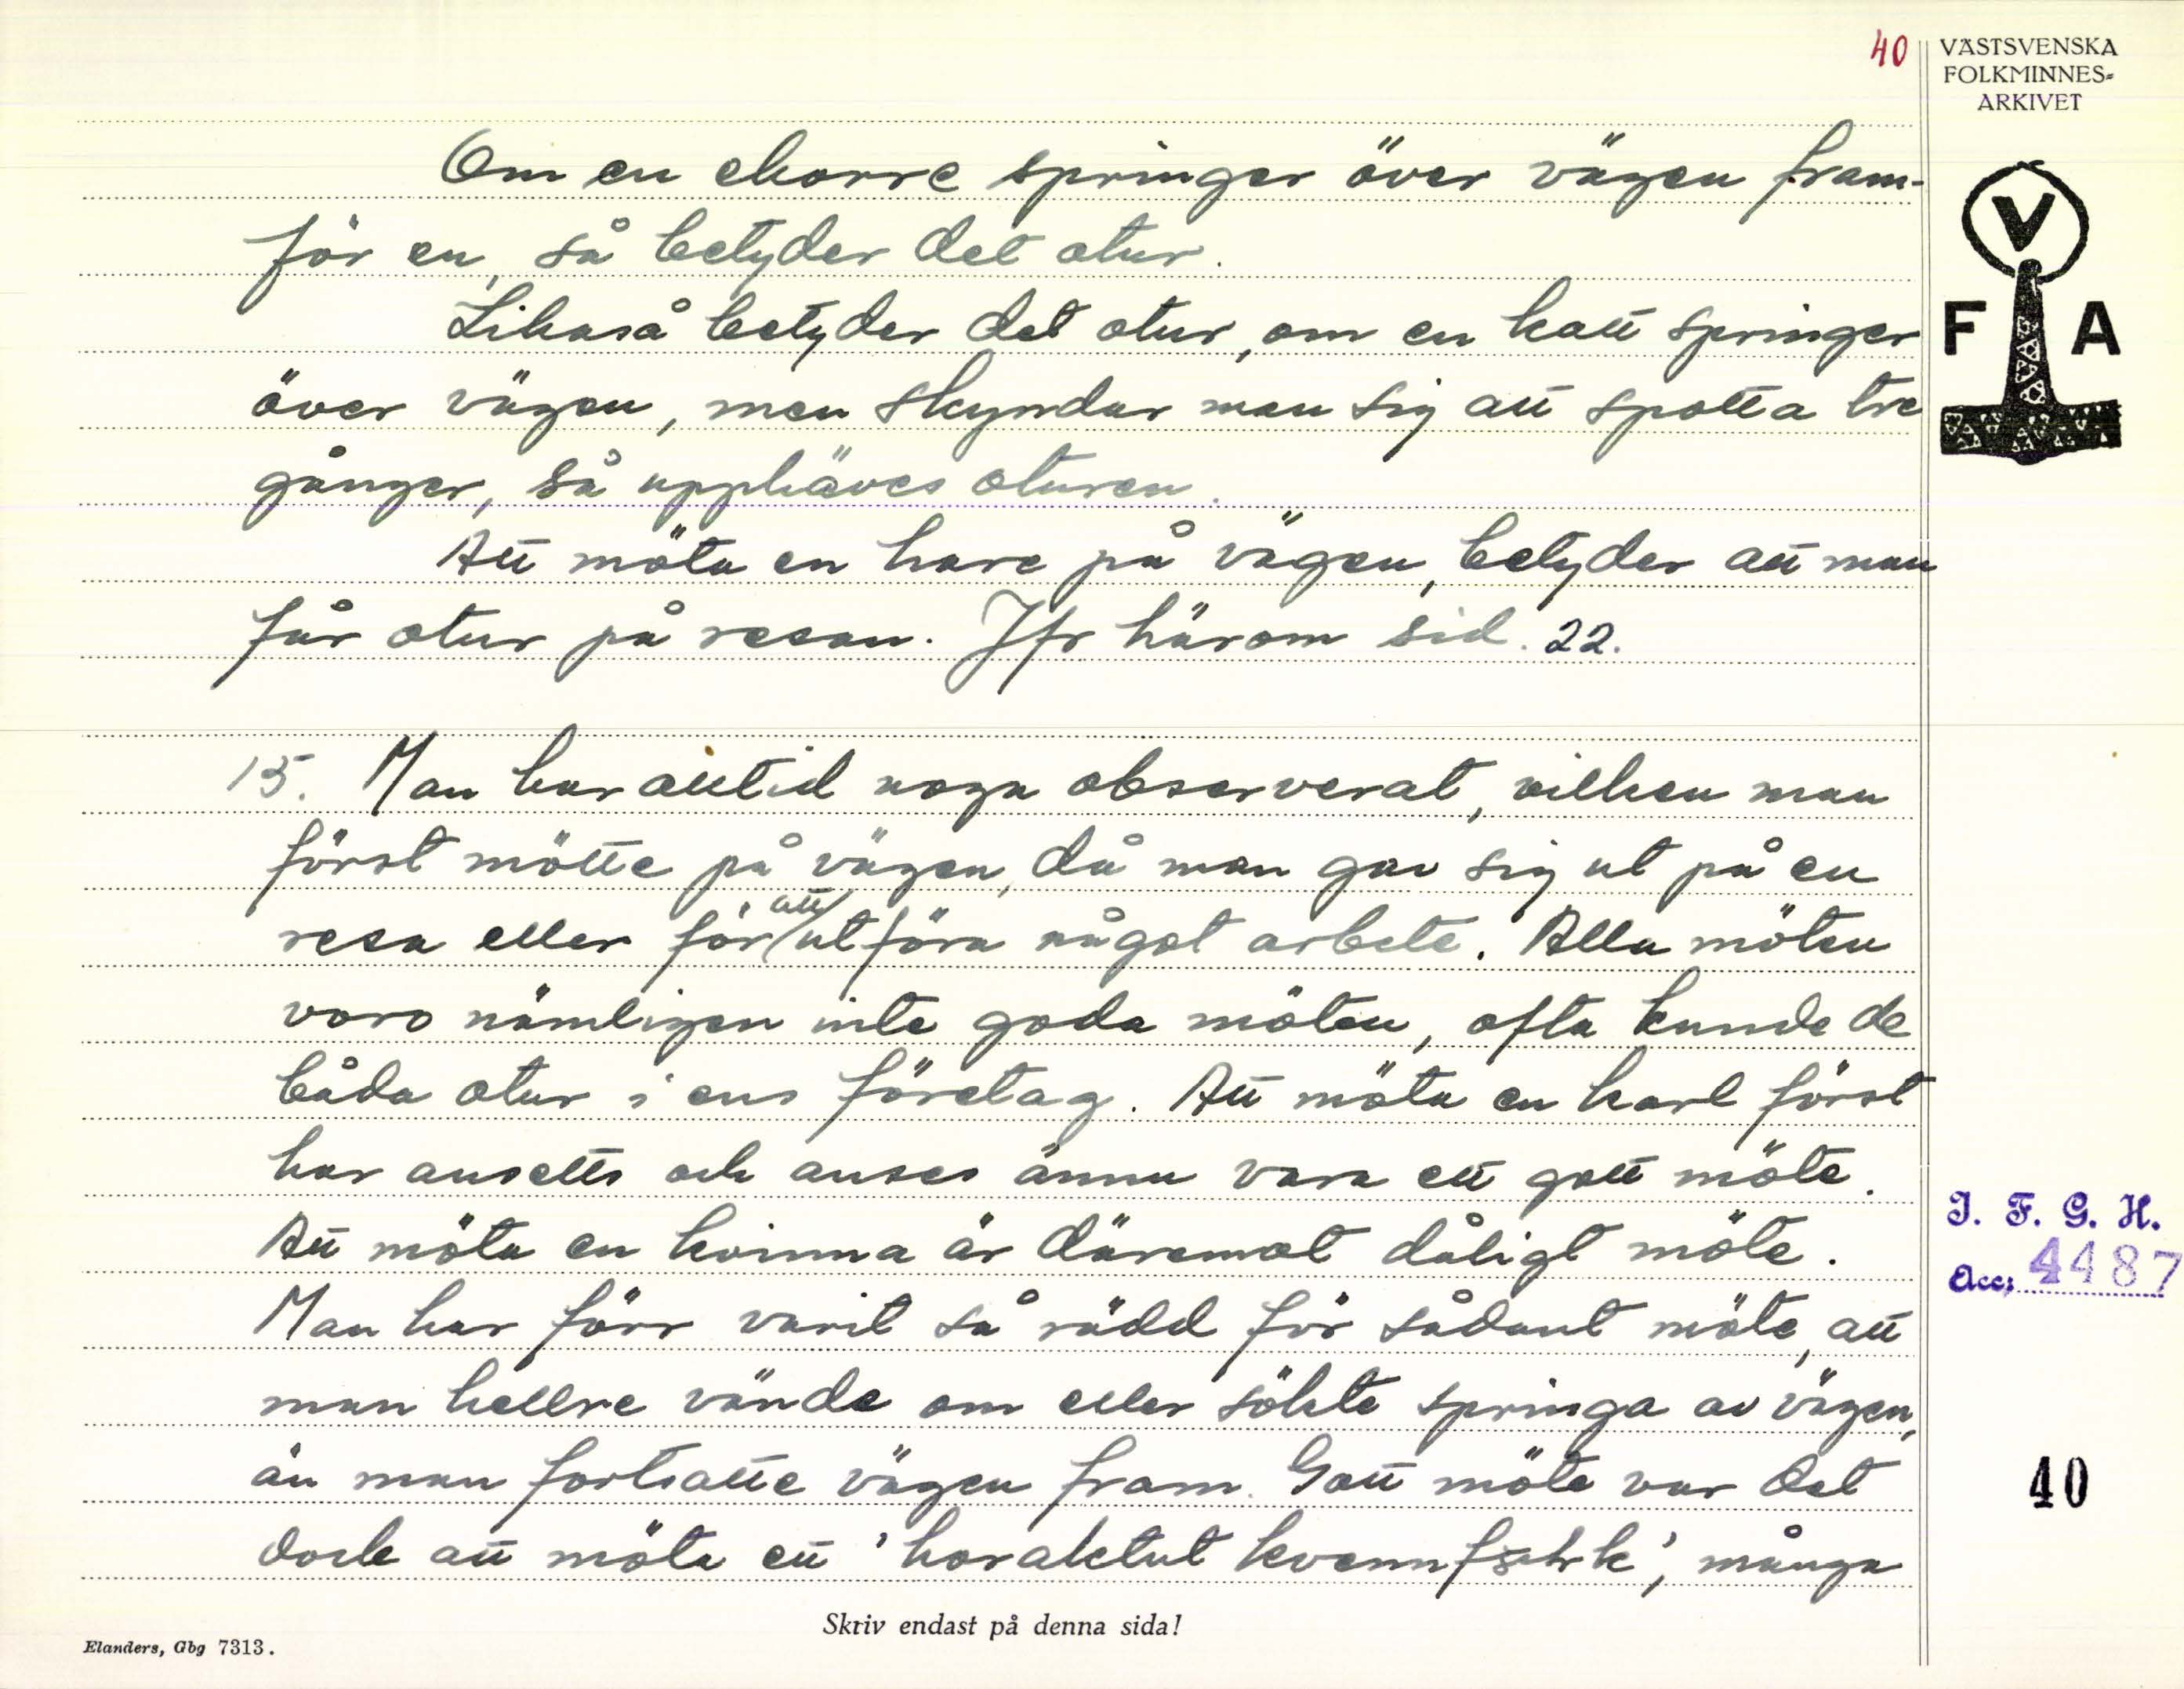 40
VÄSTSVENSKA
FOLKMINNES=
ARKIVET
V
F A
Om en ekorre springer över vägen fram-
för en, så betyder det otur.
Likaså betyder det otur, om en katt springer
över vägen, men skyndar man sig att spotta tre
gånger, så upphäves oturen.
Att möta en hare på vägen, betyder att man
får otur på resan. Jfr härom sid. 22.
15. Man har alltid noga observerat, vilken man
först mötte på vägen, då man gav sig ut på en
resa eller för att utföra något arbete. Alla möten
voro nämligen inte goda möten, ofta kunde de
båda otur i ens företag. Att möta en karl först
har ansetts och anses ännu vara ett gott möte.
Att möta en kvinna är däremot dåligt möte.
Man har förr varit så rädd för sådant möte, att
man hellre vände om eller sökte springa av vägen,
än man fortsatte vägen fram. Gott möte var det
dock att möta ett 'horaktut , många
I. F. G. H.
Acc; 4487
40
Skriv endast på denna sida!
Elanders, Gbg 7313.